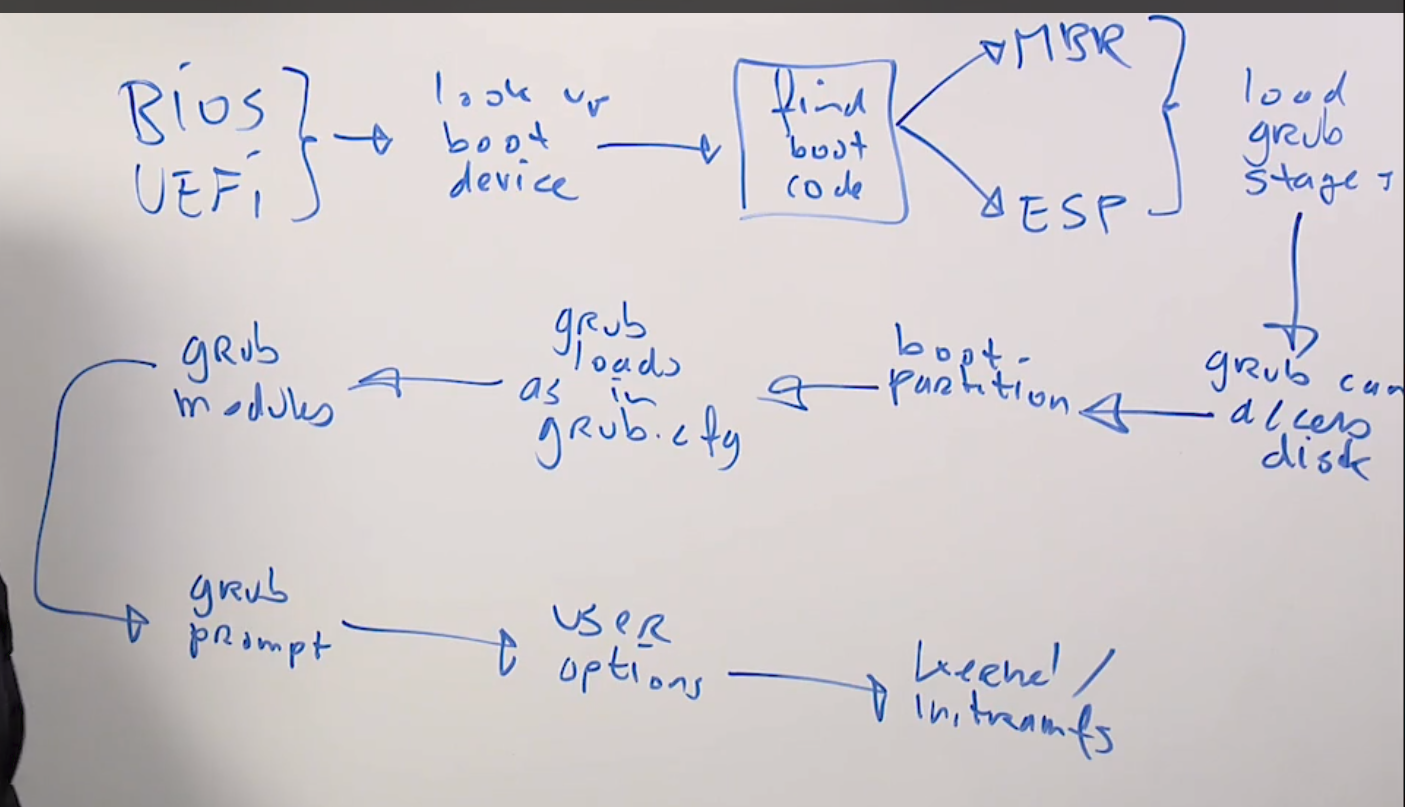 BIOS
UEFI
look up
boot
device
find
boot
code
MBR
ESP
load
grub
stages
grub can
access
disk
boot
partition
grub
loads
as in
grub.cfg
grub
modules
grub
prompt
user
options
kernel /
initramfs